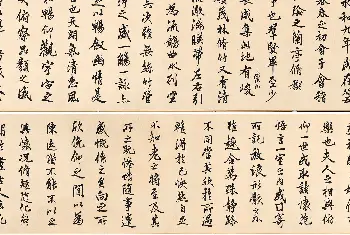 和九年歲在
春之初會于會稽
陰之蘭亭脩禊
事也群賢畢至少
咸集此地有
崇山
茂林脩竹又有清
激湍暎帶左右引
為流觴曲水列坐
次雖無絲竹管
之盛一觴一詠亦
以暢敘幽情是
也天朗氣清惠風
暢仰觀宇宙之
俯察品類之盛
樂也夫人之相與俯
仰一世或取諸懷抱
悟言一室之內或因寄
所託放浪形骸之外
雖趣舍萬殊靜躁
不同當其欣於所遇
暫得於己怏然自足
不知老之將至及其
所之既惓情隨事遷
感慨係之矣向之所
欣俛仰之間以為
陳迹猶不能不以之
興懷況脩短隨化終